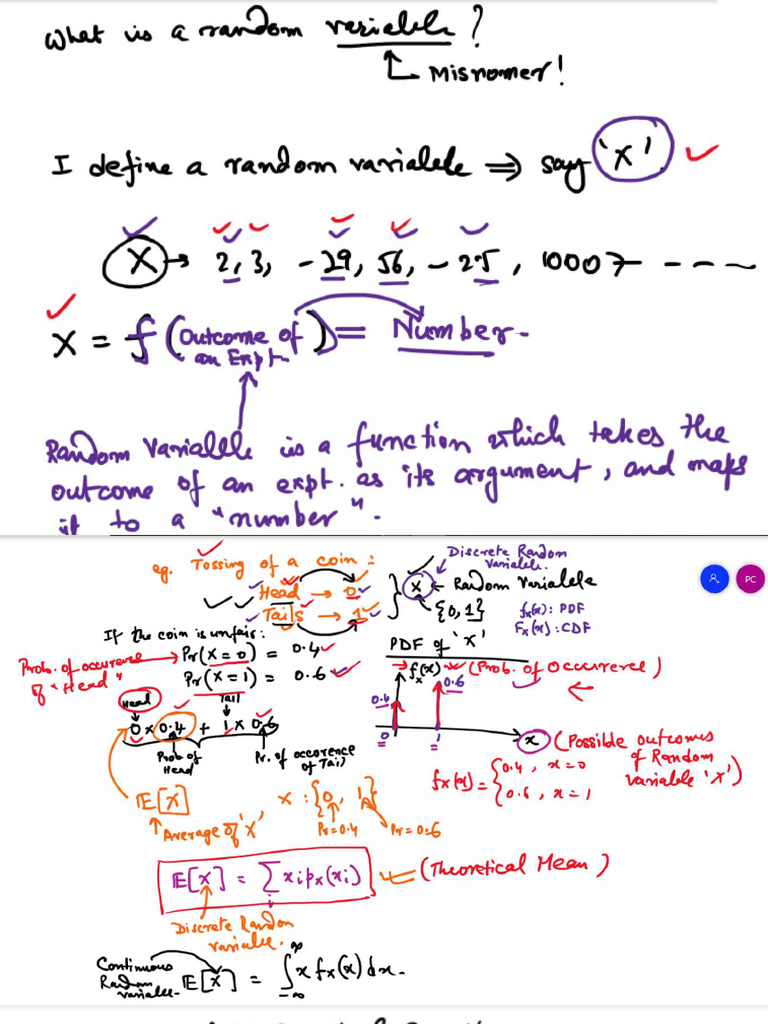 What is a random variable?
Misnomer!
I define a random variable ⇒ say 'X'
X → 2, 3, -29, 56, -25, 10007 ----
X = f(Outcome of an Expt.) = Number.
Random Variable is a function which takes the
outcome of an expt. as its argument, and maps
it to a "number".
eg. Tossing of a coin:
Head → 0
Tails → 1
X ← Random Variable
{0,1}
Discrete Random
Variable.
fx(x): PDF
Fx(x): CDF
If the coin is unfair:
Pr(X=0) = 0.4
Pr(X=1) = 0.6
Prob. of occurence
of "Head"
Head
Tail
0 x 0.4 + 1 x 0.6
Prob of
Head
Pr. of occorence
of Tail
PDF of 'X'
fx(x) (Prob. of Occurrence)
0.4
0.6
0
1
x (Possible outcomes
of Random
variable 'X')
fx(x) = {0.4, x=0
0.6, x=1
E[X]
Average of 'X'
X : {0, 1}
Pr=0.4
Pr=0.6
E[X] = ∑ xi px(xi)
i
(Theoretical Mean)
Discrete Random
Variable.
Continuous
Random
variable.
E[X] = ∫ x fx(x) dx.
∞
-∞
PC